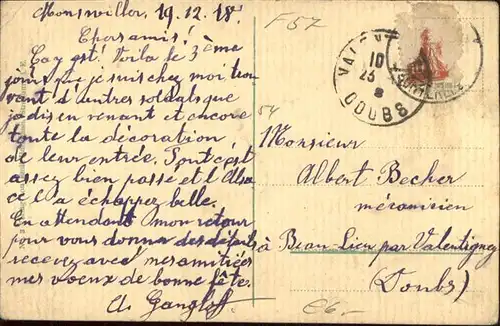 Monswiller, 19.12.18.
Chers amis!
Ça y est! Voilà le 3ème
jour que je suis chez moi trou
vant d'autres soldats que
je dis en venant et encore
toute la décoration
de leur entrée. Tout c'est
assez bien passé et l'Alsa
ce l'a échappez belle.
En attendant mon retour
pour vous donner des détails
recevez avec mes amitiées
mes voeux de bonne fête.
A. Gangloff
F57
54
VALEN
10
23
8
DOUBS
Monsieur
Albert Becher
mécanicien
à Beau-Lieu par Valentigney
(Doubs)
€6.-